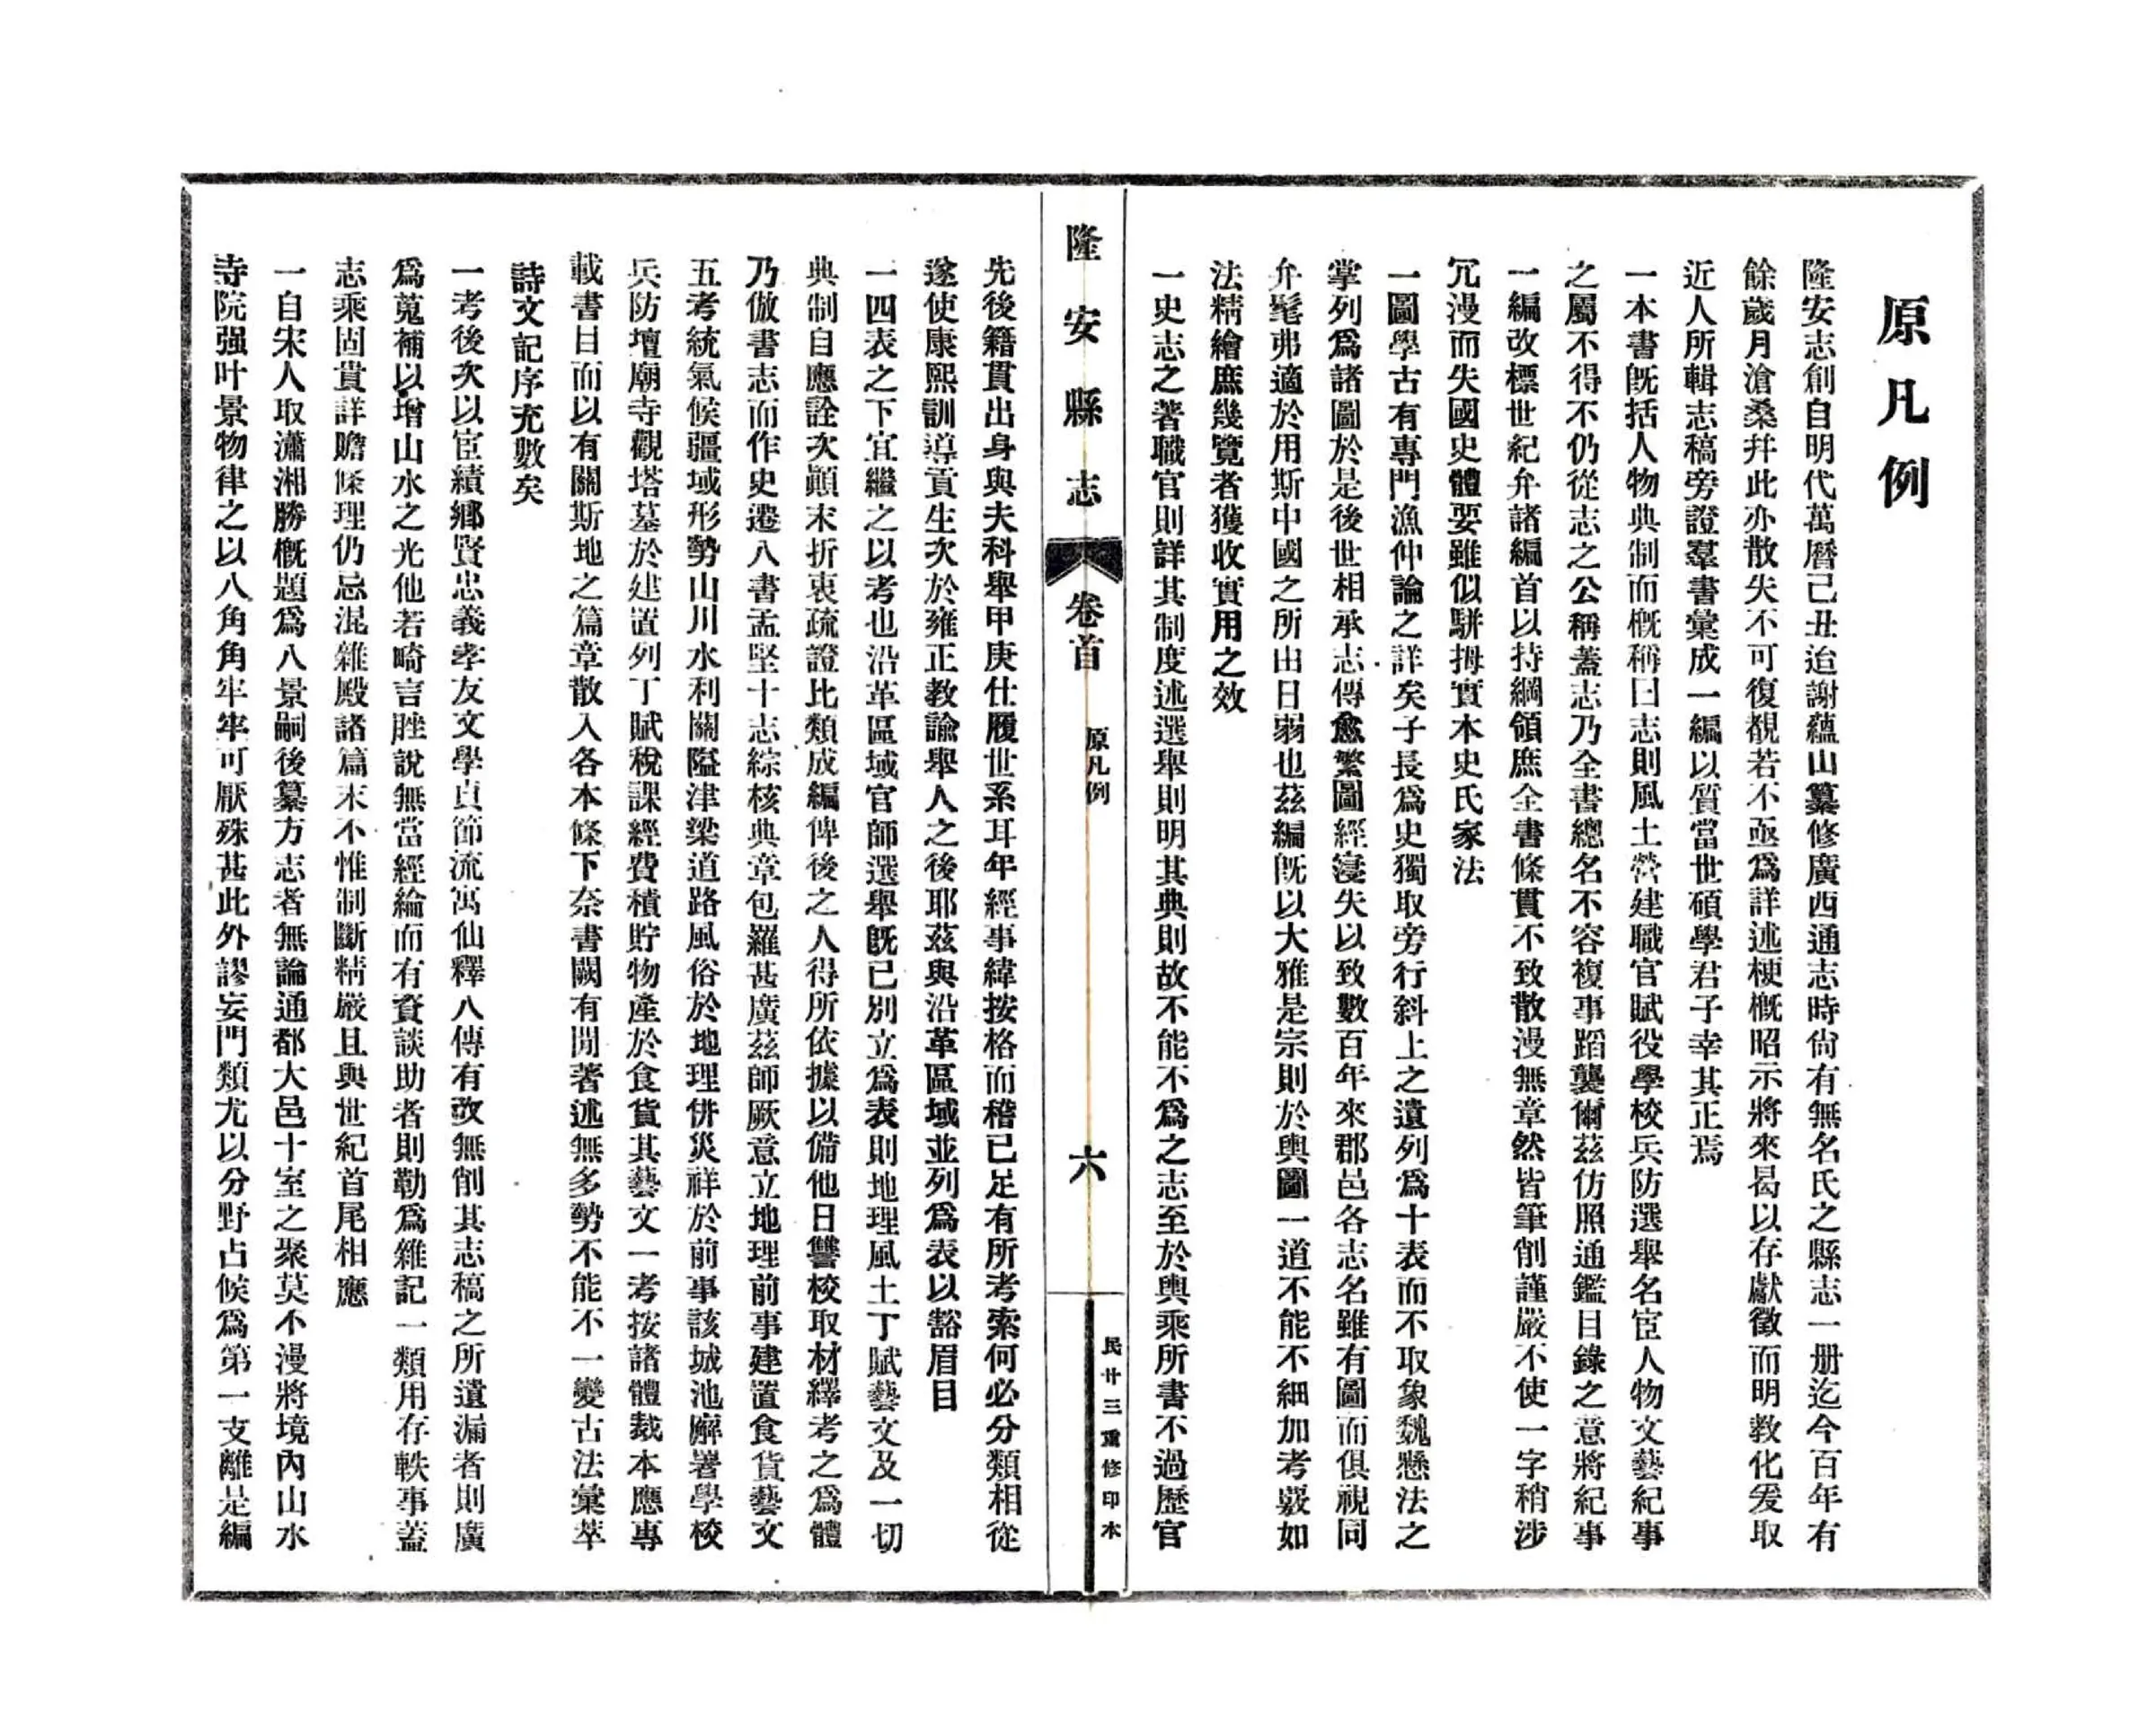 原凡例
隆安志創自明代萬曆己丑迨謝蘊山纂修廣西通志時尙有無名氏之縣志一册迄今百年有
餘歲月滄桑幷此亦散失不可復覩若不亟爲詳述梗槪昭示將來曷以存獻徵而明敎化爰取
近人所輯志稿旁證羣書彙成一編以質當世碩學君子幸其正焉
一本書旣括人物典制而槪稱曰志則風土營建職官賦役學校兵防選舉名宦人物文藝紀事
之屬不得不仍從志之公稱蓋志乃全書總名不容複事蹈襲爾茲仿照通鑑目錄之意將紀事
一編改標世紀弁諸編首以持綱領庶全書條貫不致散漫無章然皆筆削謹嚴不使一字稍涉
冗漫而失國史體要雖似駢拇實本史氏家法
一圖學古有專門漁仲論之詳矣子長爲史獨取旁行斜上之遺列爲十表而不取象魏懸法之
掌列爲諸圖於是後世相承志傳愈繁圖經寖失以致數百年來郡邑各志名雖有圖而俱視同
弁髦弗適於用斯中國之所由日弱也茲編旣以大雅是宗則於輿圖一道不能不細加考覈如
法精繪庶幾覽者獲收實用之效
一史志之著職官則詳其制度述選舉則明其典則故不能不爲之志至於輿乘所書不過歷官
隆安縣志
卷首
原凡例
六
民廿三重修印本
先後籍貫出身與夫科舉甲庚仕履世系耳年經事緯按格而稽已足有所考索何必分類相從
遂使康熙訓導貢生次於雍正敎諭舉人之後耶茲與沿革區域並列爲表以豁眉目
一四表之下宜繼之以考也沿革區域官師選舉旣已別立爲表則地理風土丁賦藝文及一切
典制自應詮次顚末折衷疏證比類成編俾後之人得所依據以備他日讐校取材繹考之爲體
乃倣書志而作史遷八書孟堅十志綜核典章包羅甚廣茲師厥意立地理前事建置食貨藝文
五考統氣候疆域形勢山川水利關隘津梁道路風俗於地理併災祥於前事該城池廨署學校
兵防壇廟寺觀塔墓於建置列丁賦稅課經費積貯物產於食貨其藝文一考按諸體裁本應專
載書目而以有關斯地之篇章散入各本條下奈書闕有閒著述無多勢不能不一變古法彙萃
詩文記序充數矣
一考後次以宦績鄕賢忠義孝友文學貞節流寓仙釋八傳有攷無削其志稿之所遺漏者則廣
爲蒐補以增山水之光他若畸言脞說無當經綸而有資談助者則勒爲雜記一類用存軼事蓋
志乘固貴詳贍條理仍忌混雜殿諸篇末不惟制斷精嚴且與世紀首尾相應
一自宋人取瀟湘勝槪題爲八景嗣後纂方志者無論通都大邑十室之聚莫不漫將境內山水
寺院强叶景物律之以八角角牢牢可厭殊甚此外謬妄門類尤以分野占候爲第一支離是編